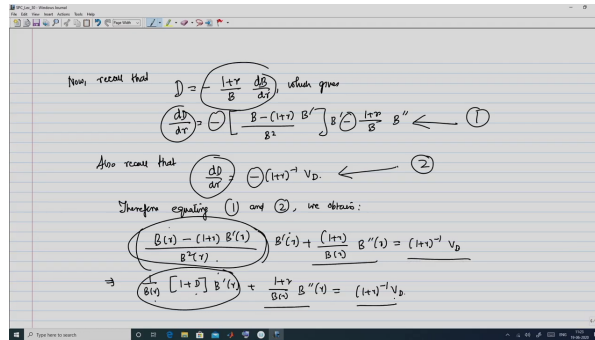 SPC_Lec_30 - Windows Journal
File Edit View Insert Actions Tools Help
Page Width
Now, recall that D = - \frac{1+r}{B} \frac{dB}{dr}, which gives
\frac{dD}{dr} = - [ \frac{B - (1+r) B'}{B^2} ] B' - \frac{1+r}{B} B'' ← ①
Also recall that \frac{dD}{dr} = - (1+r)^{-1} V_D. ← ②
Therefore equating ① and ②, we obtain:
\frac{B(r) - (1+r) B'(r)}{B^2(r)} B'(r) + \frac{(1+r)}{B(r)} B''(r) = (1+r)^{-1} V_D
⇒ \frac{1}{B(r)} [1+D] B'(r) + \frac{1+r}{B(r)} B''(r) = (1+r)^{-1} V_D.
Type here to search
ENG